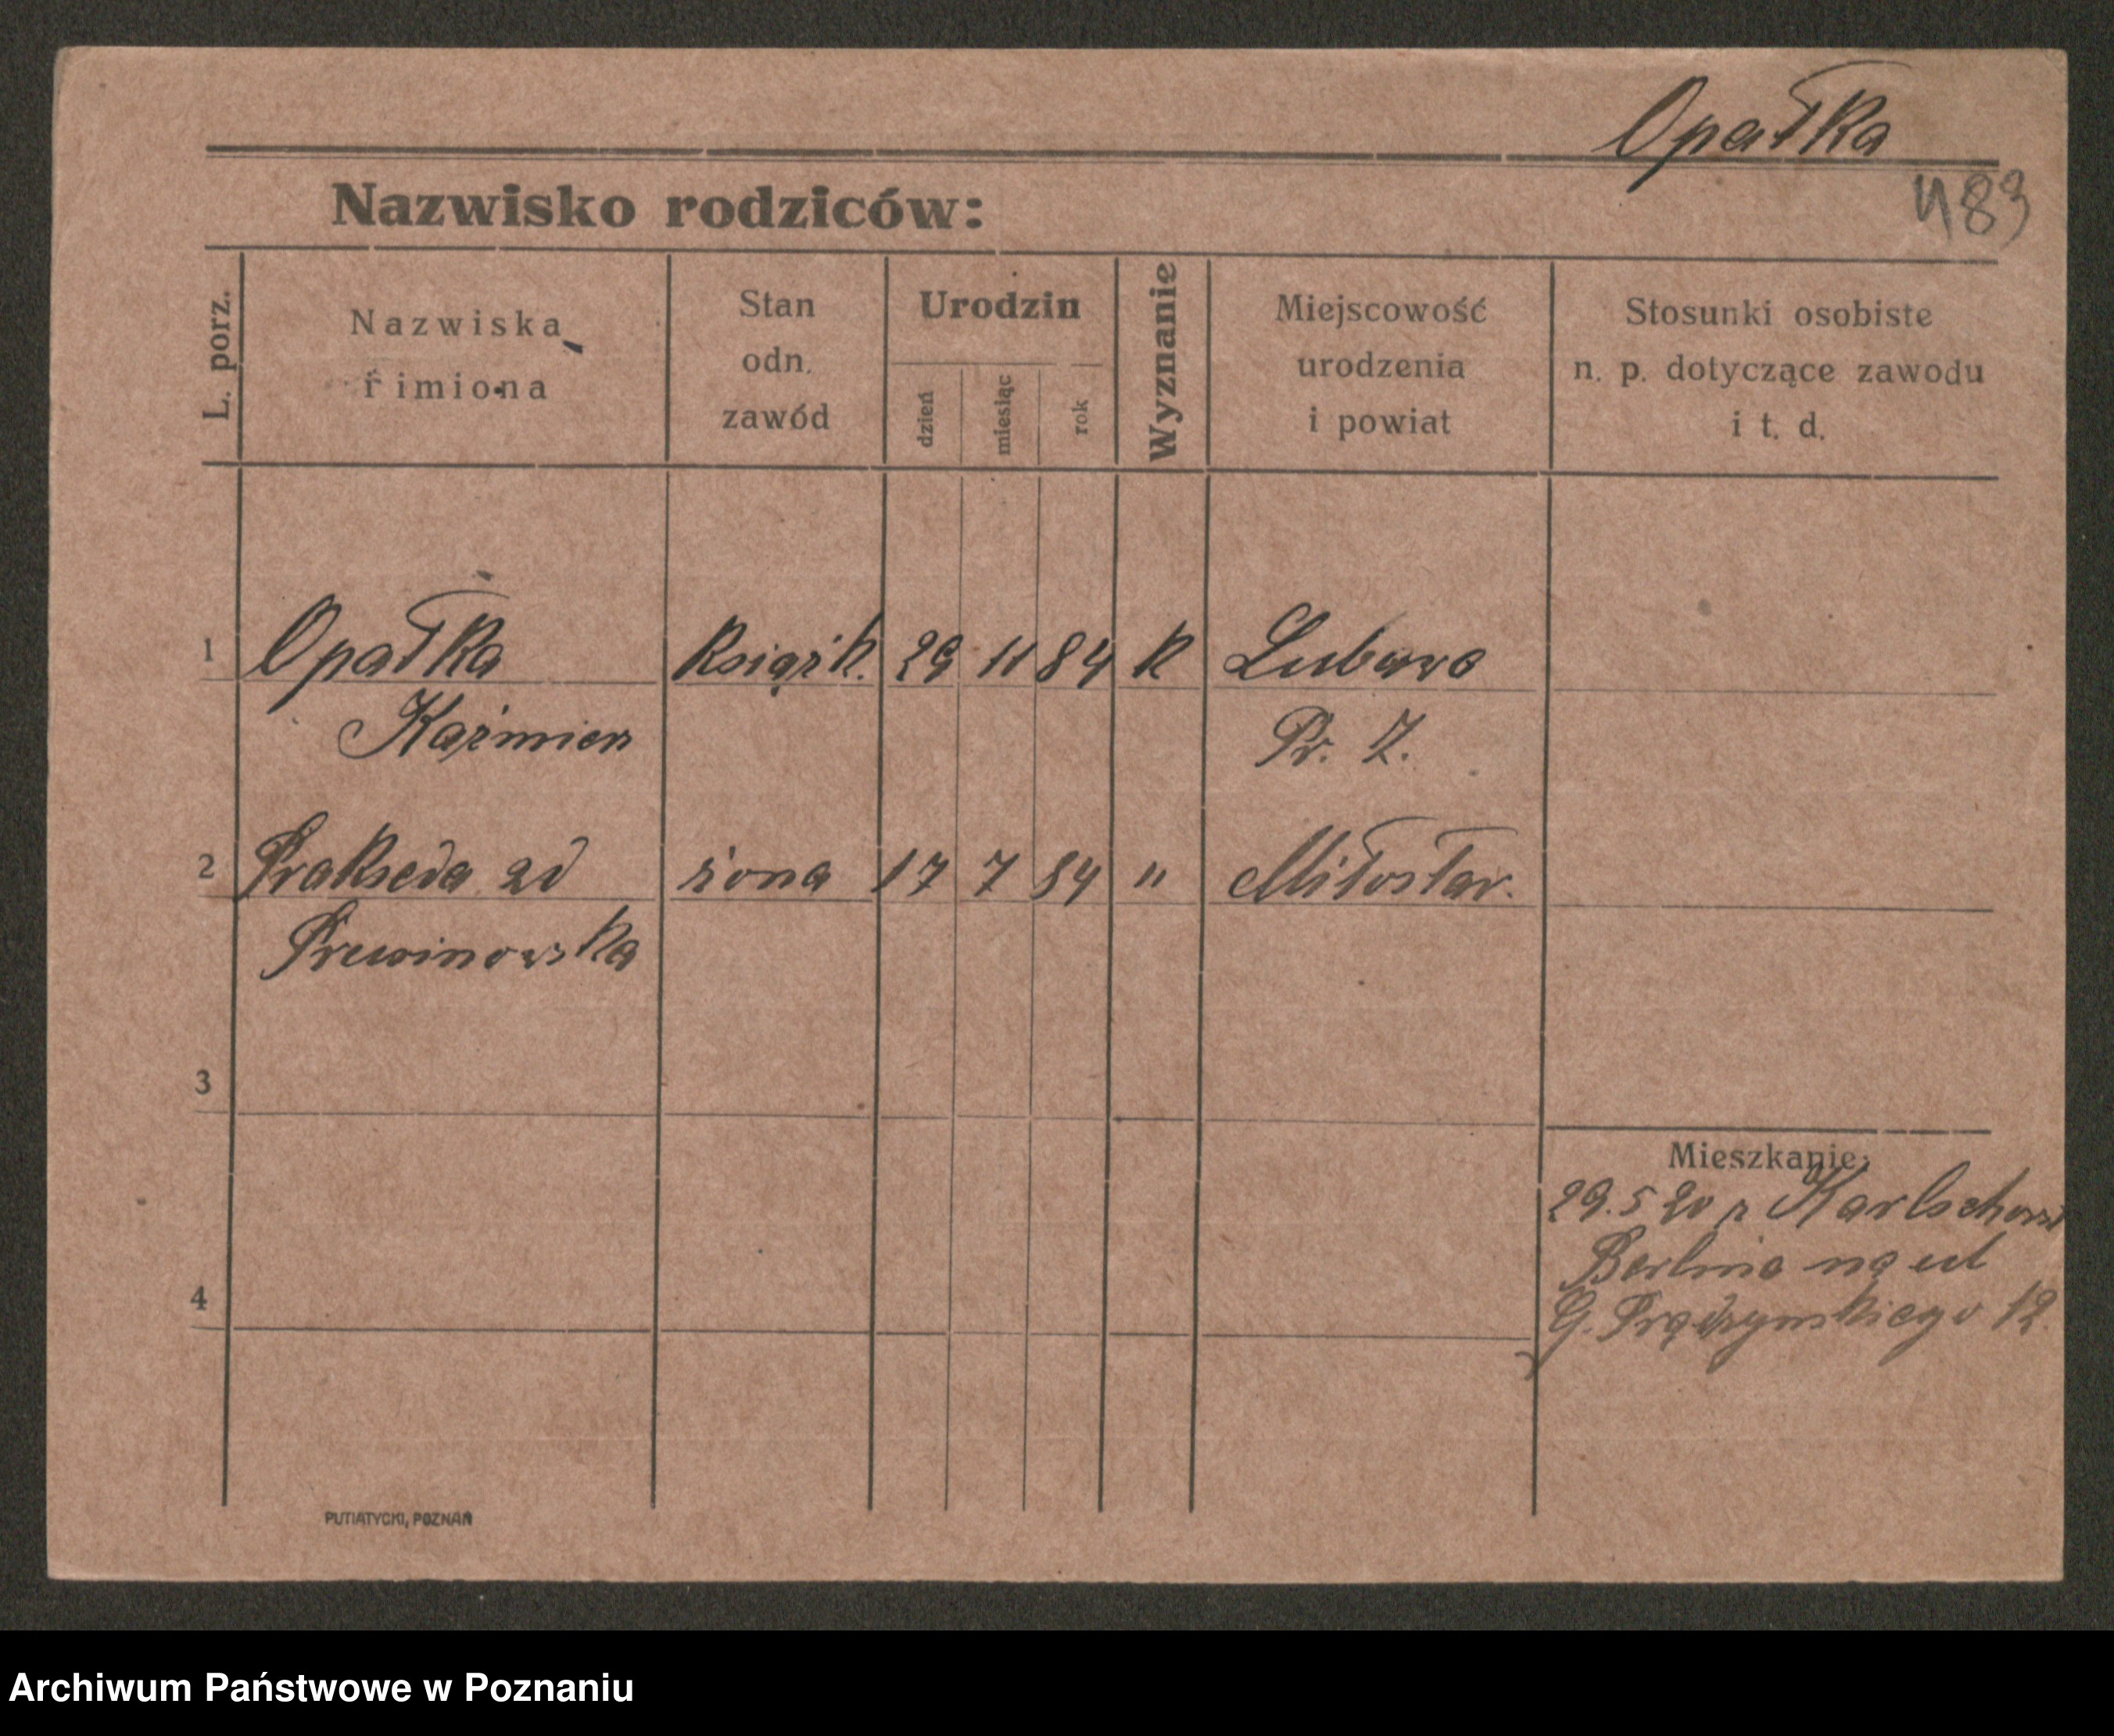 Opałka
483
Nazwisko rodziców:
L. porz.
Nazwiska
i imiona
Stan
odn.
zawód
Urodzin
dzień
miesiąc
rok
Wyznanie
Miejscowość
urodzenia
i powiat
Stosunki osobiste
n. p. dotyczące zawodu
i t. d.
1 Opałka Książk. 29 11 84 k Lubawa
Kaźmierz Pr. Z.
2 Prakseda zd żona 17 7 84 " Miłosław.
3
4
Mieszkanie:
29.5 20 z Karlschorst
Berlina na ul
G. Prądzyńskiego 12.
PUTIATYCKI, POZNAŃ
Archiwum Państwowe w Poznaniu